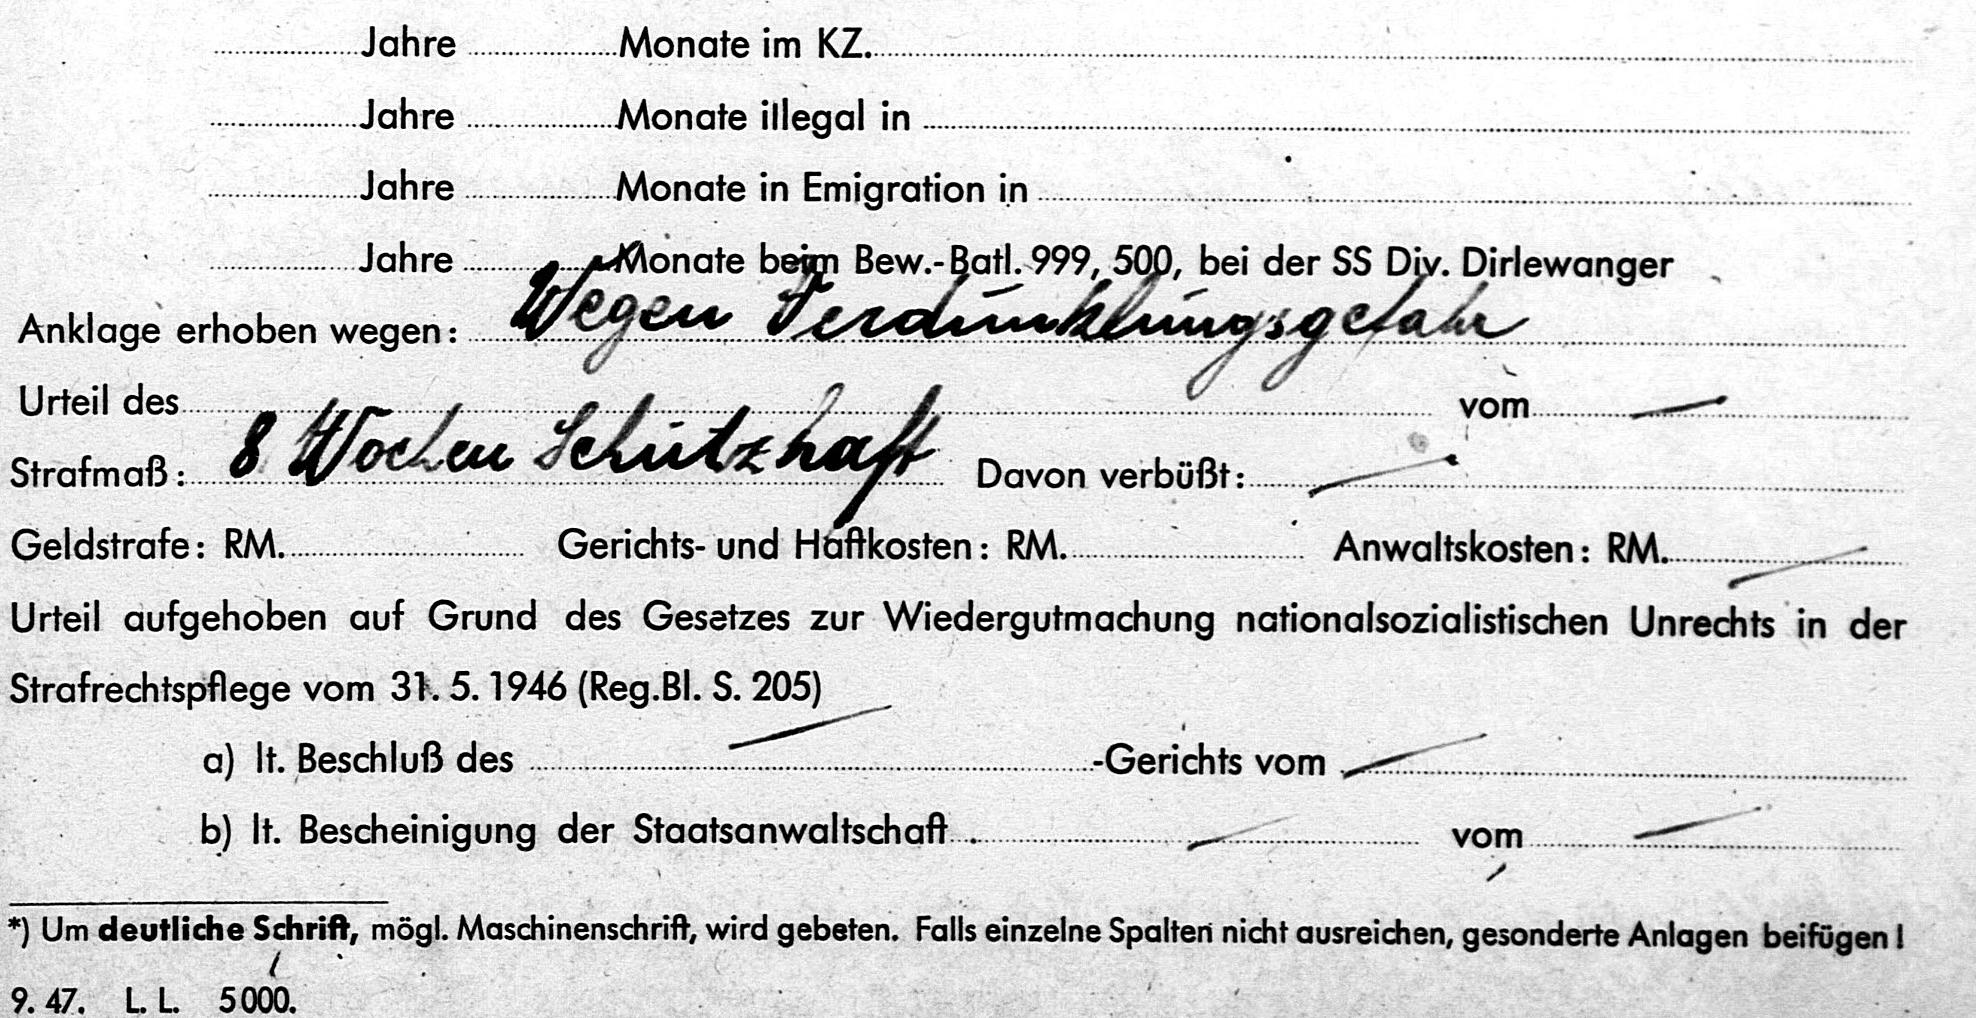 Jahre Monate im KZ.
Jahre Monate illegal in
Jahre Monate in Emigration in
Jahre Monate beim Bew.-Batl. 999, 500, bei der SS Div. Dirlewanger
Anklage erhoben wegen: Wegen Verdunklungsgefahr
Urteil des vom —
Strafmaß: 8 Wochen Schutzhaft Davon verbüßt: —
Geldstrafe: RM. Gerichts- und Haftkosten: RM. Anwaltskosten: RM. —
Urteil aufgehoben auf Grund des Gesetzes zur Wiedergutmachung nationalsozialistischen Unrechts in der
Strafrechtspflege vom 31. 5. 1946 (Reg.Bl. S. 205)
a) lt. Beschluß des — -Gerichts vom —
b) lt. Bescheinigung der Staatsanwaltschaft — vom —
*) Um deutliche Schrift, mögl. Maschinenschrift, wird gebeten. Falls einzelne Spalten nicht ausreichen, gesonderte Anlagen beifügen!
9. 47. L. L. 5000.